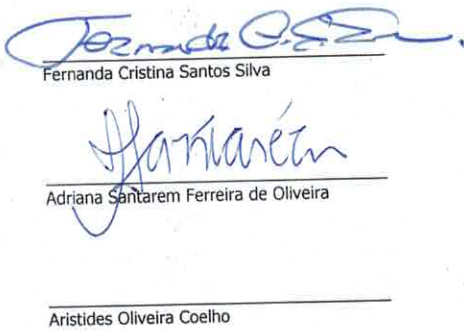 Fernanda C. S. S
Fernanda Cristina Santos Silva
ASantarém
Adriana Santarem Ferreira de Oliveira
Aristides Oliveira Coelho